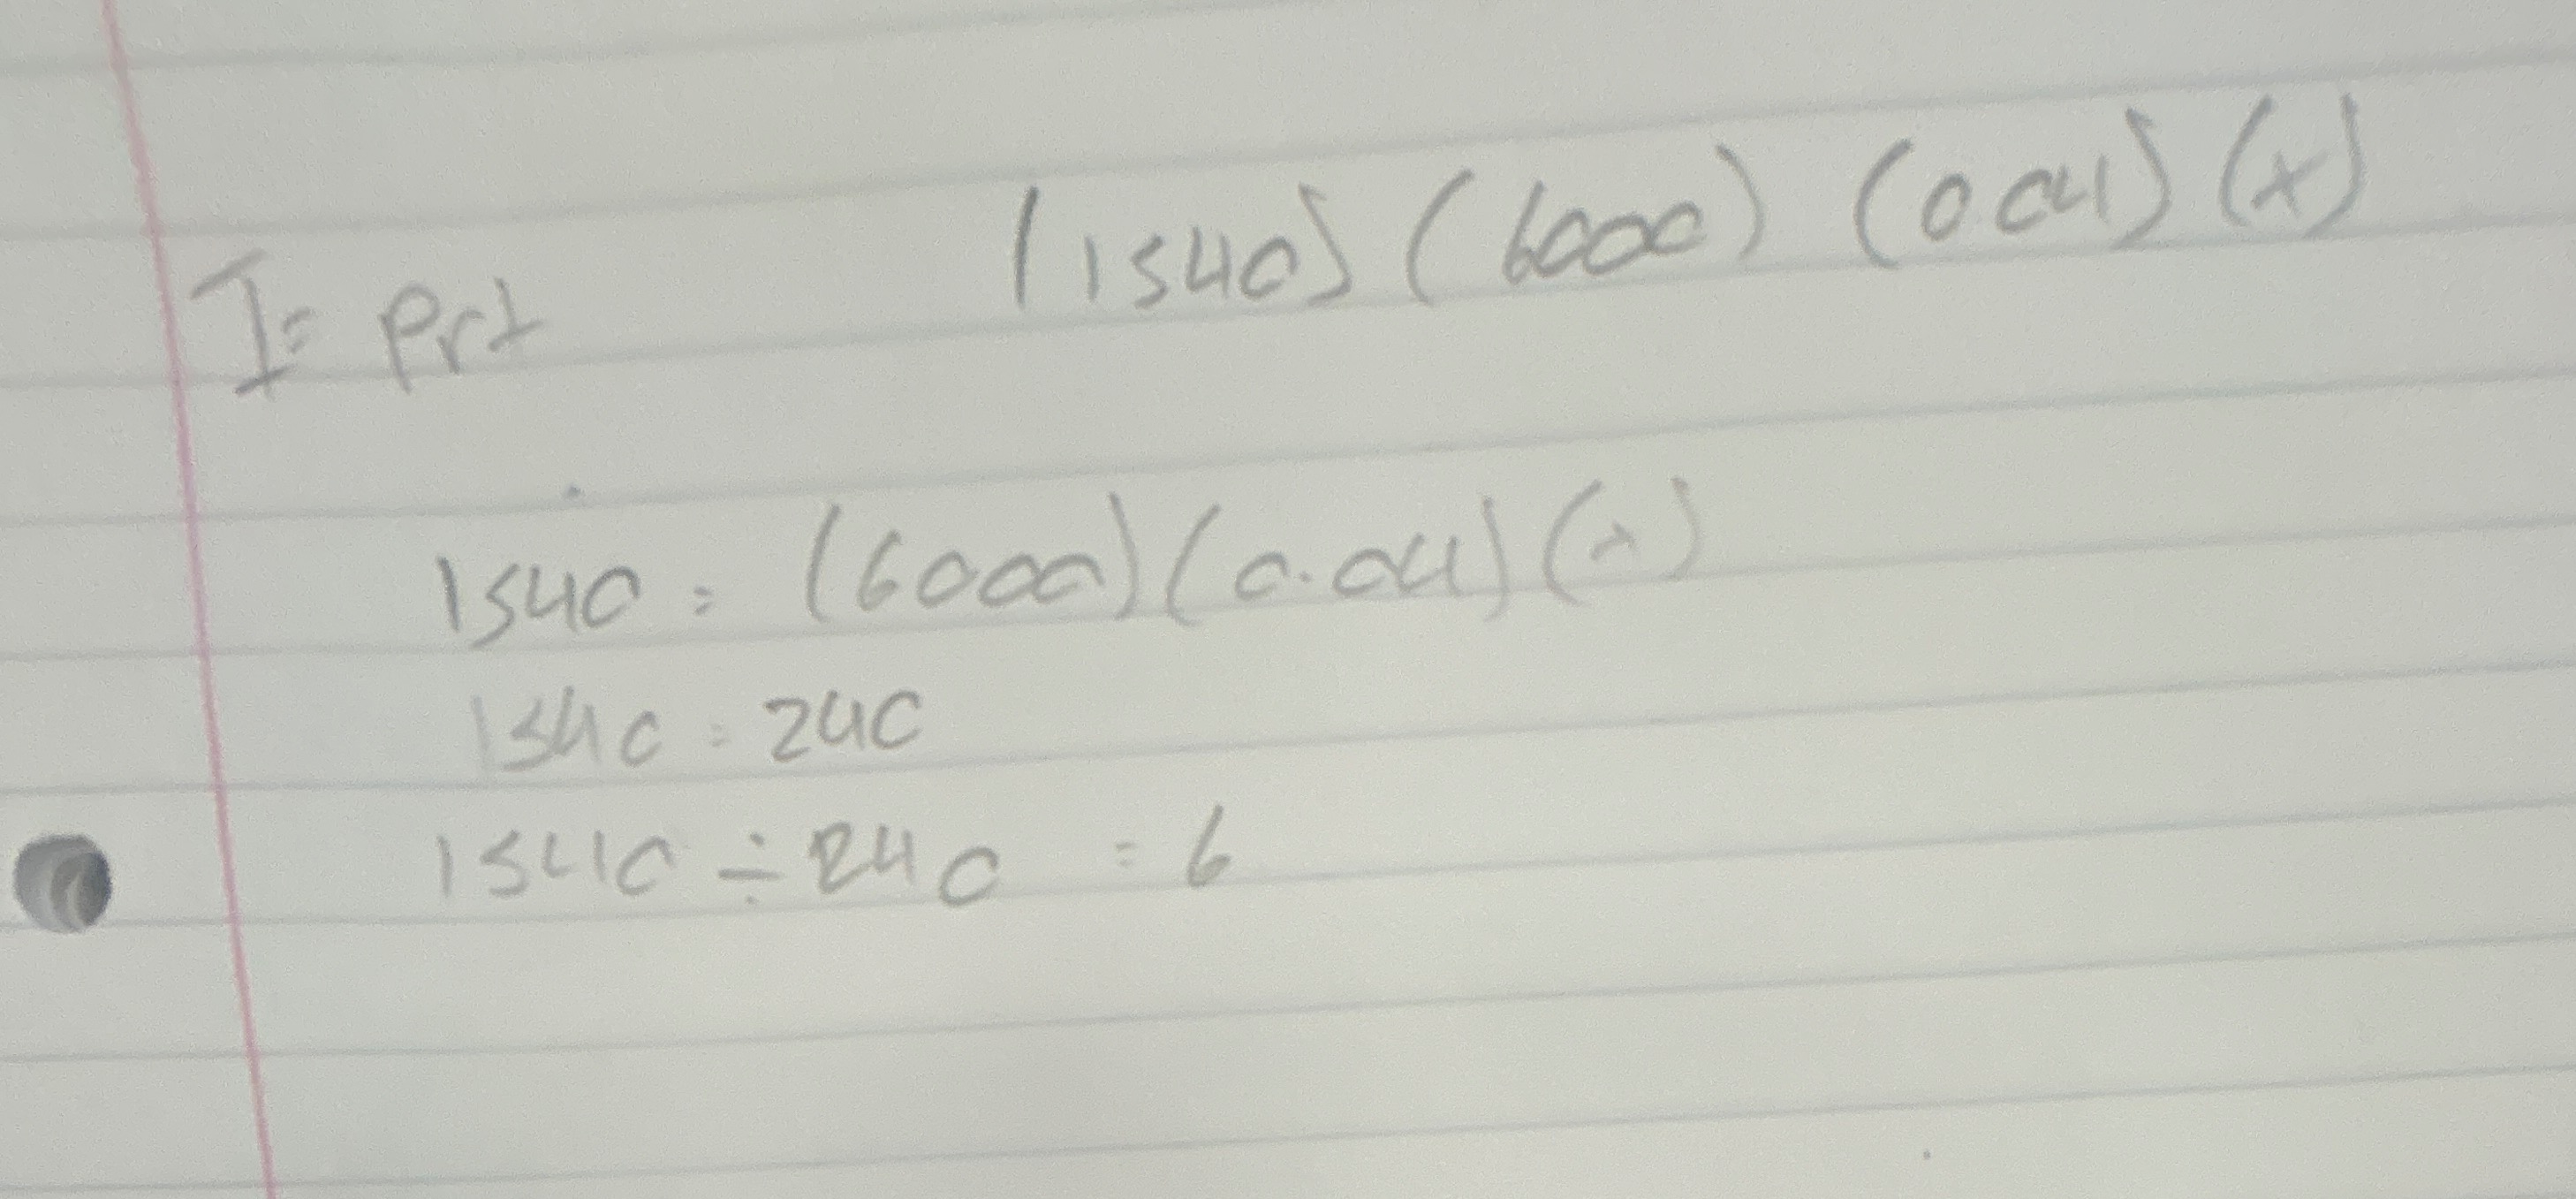 (1540) (6000) (0.04) (x)
I = Prt
1540 = (6000) (0.04) (x)
1540 = 240
1540 ÷ 240 = 6